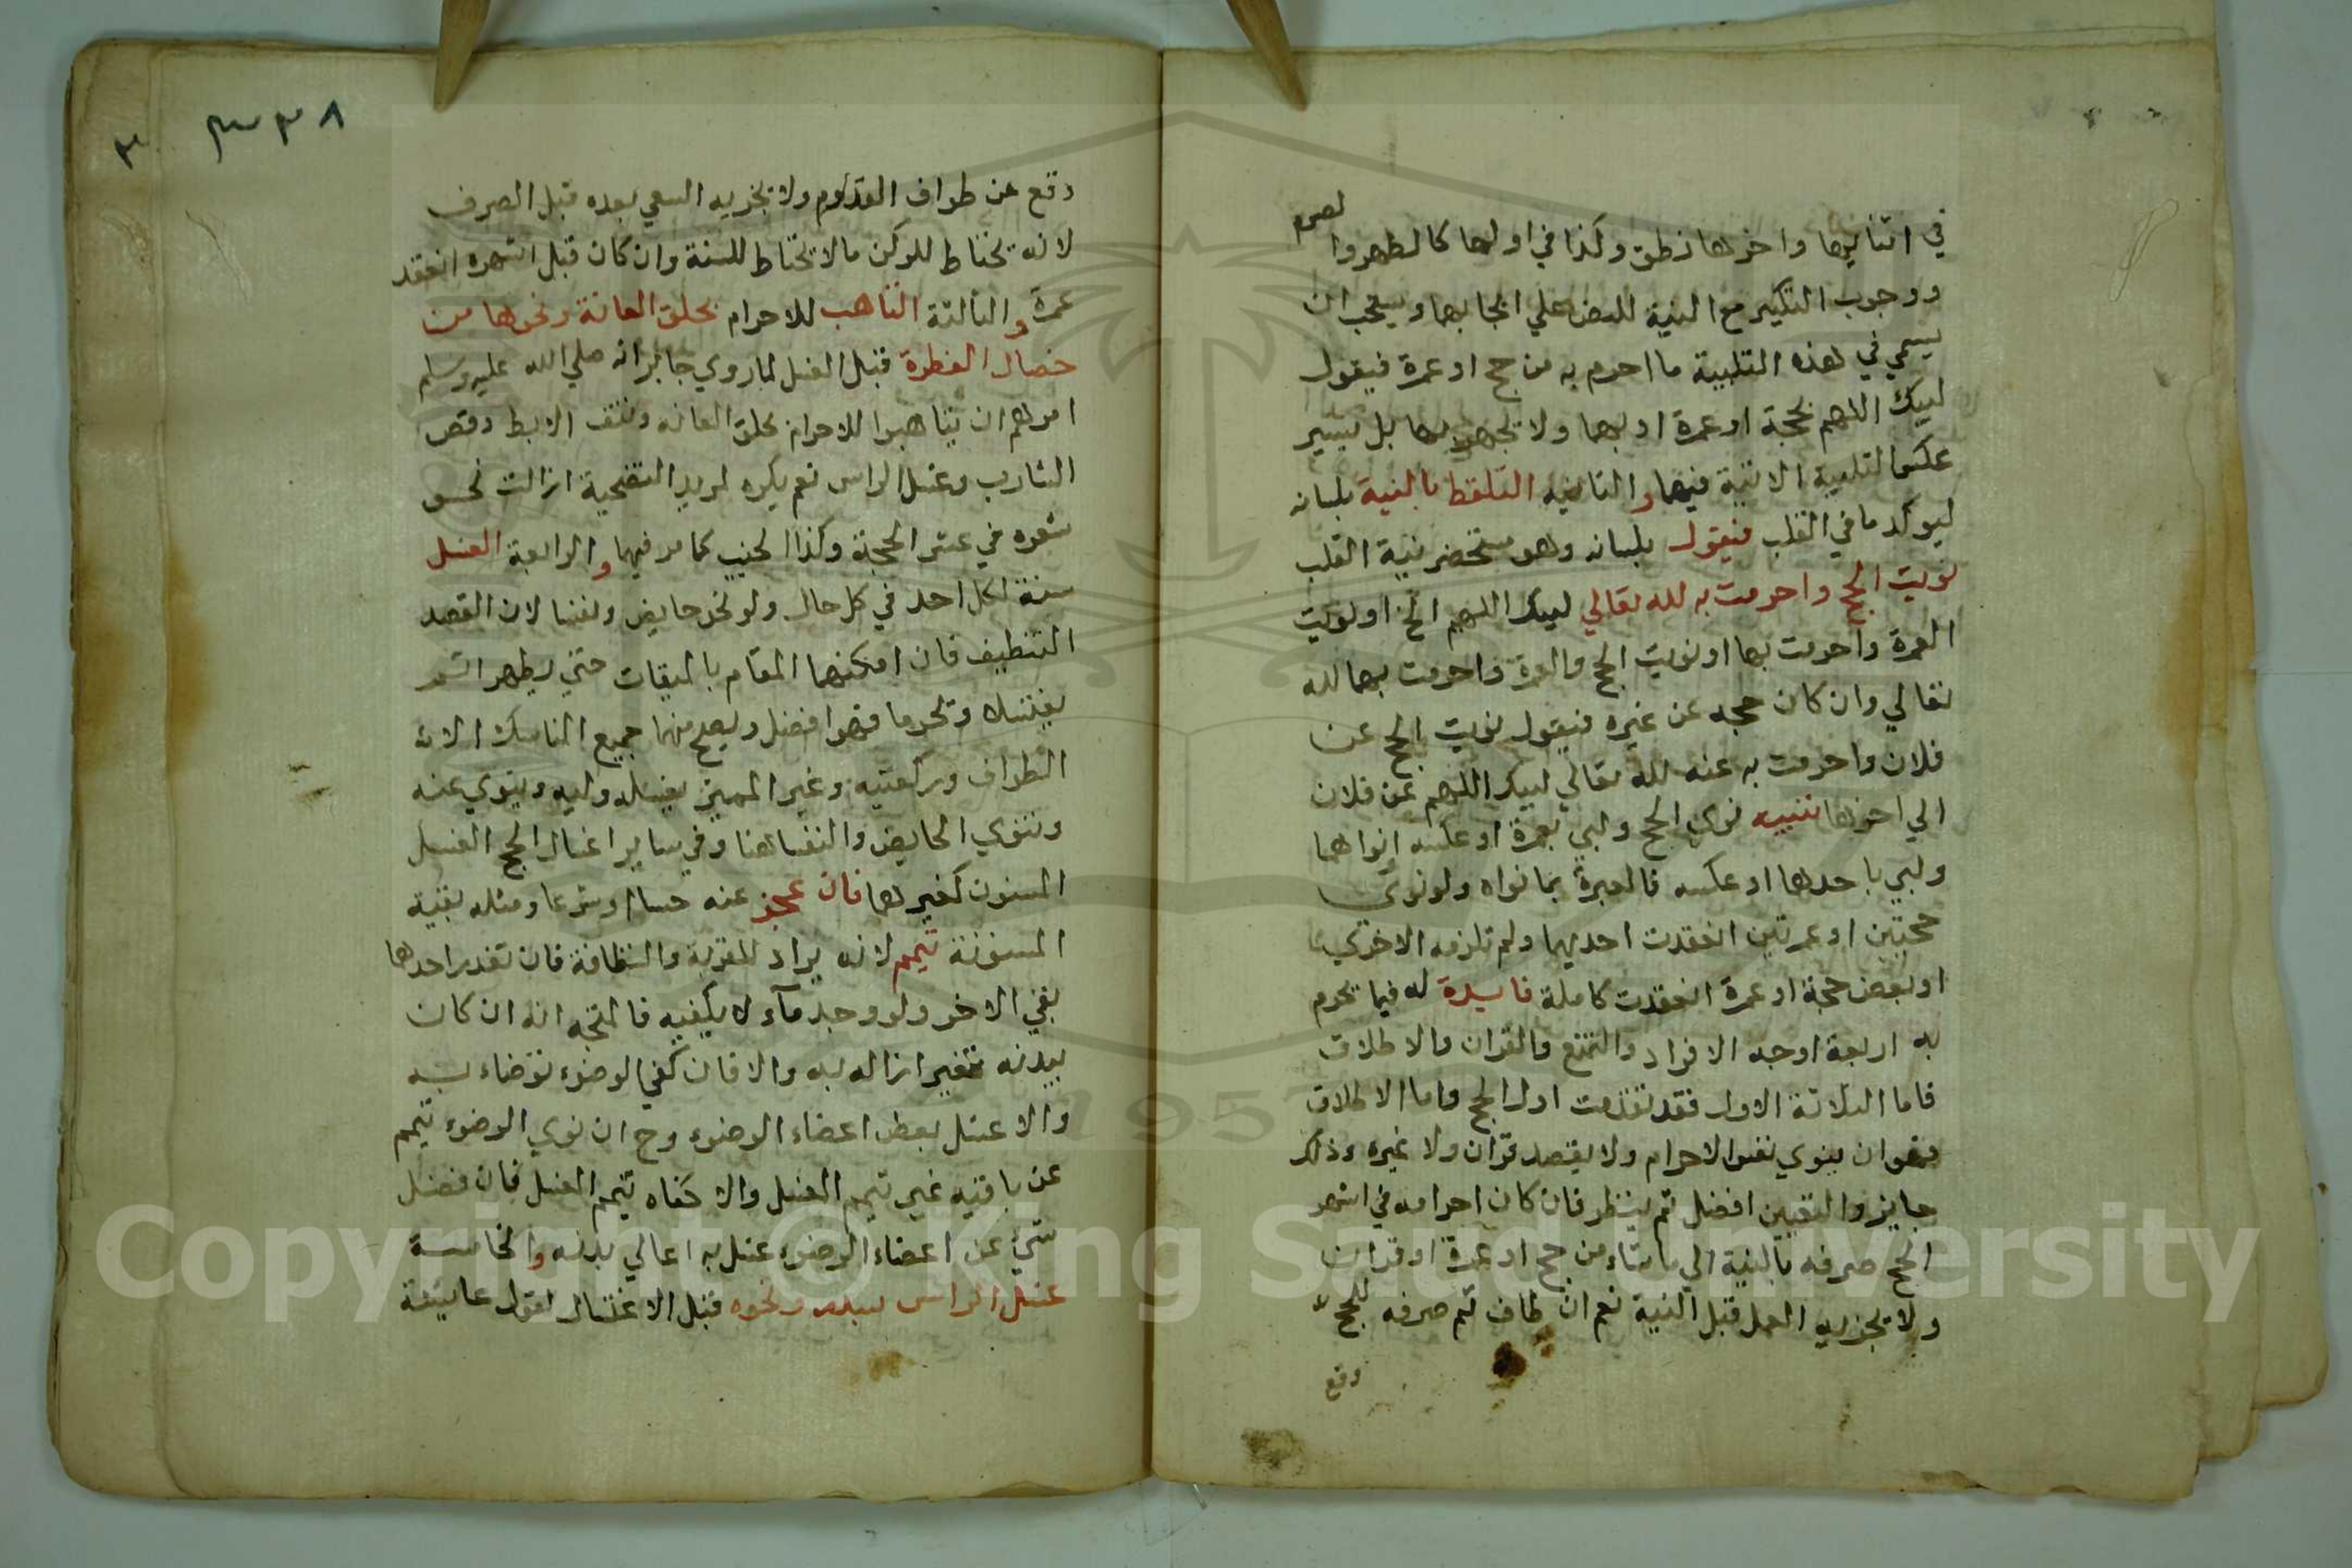 في اثنايها واخرها نطق وكذا في اولها كالطهر والصوم
ووجوب التكبير مع النية للنص علي ايجابهما ويستحب ان
يسمي في هذه التلبية ما احرم به من حج او عمرة فيقول
لبيك اللهم بحجة او عمرة او بهما ولا يجهر بها بل يسير
عكس التلبية الاتية فيها والثانية التلفظ بالنية بلسانه
ليوكد ما في القلب فيقول بلسانه وهو مستحضر نية القلب
نويت الحج واحرمت به لله تعالي لبيك اللهم الخ او نويت
العمرة واحرمت بها او نويت الحج والعمرة واحرمت بهما لله
تعالي وان كان حجه عن غيره فيقول نويت الحج عن
فلان واحرمت به عنه لله تعالي لبيك اللهم عن فلان
الي اخرها تنبيه نوي الحج ولبي بعمرة او عكسه او نواهما
ولبي باحدهما او عكسه فالعبرة بما نواه ولو نوي
حجتين او عمرتين انعقدت احديهما ولم تلزمه الاخري
او بعض حجة او عمرة انعقدت كاملة فايدة له فيما يحرم
به اربعة اوجه الافراد والتمتع والقران والاطلاق
فاما الثلاثة الاول فقد تقدمت اول الحج واما الاطلاق
فهو ان ينوي نفس الاحرام ولا يقصد قران ولا غيره وذلك
جايز والتعيين افضل ثم ينظر فان كان احرامه في اشهر
الحج صرفه بالنية الي ما شاء من حج او عمرة او قران
ولا يجزيه العمل قبل النية نعم ان طاف ثم صرفه للحج
وقع
٣٣٨
٣
وقع عن طواف القدوم ولا يجزيه السعي بعده قبل الصرف
لانه يحتاط للركن ما لا يحتاط للسنة وان كان قبل اشهره انعقد
عمرة والثالثة التاهب للاحرام بحلق العانة ونحوها من
خصال الفطرة قبل الغسل لما روي جابر انه صلي الله عليه وسلم
امرهم ان يتاهبوا للاحرام بحلق العانه ونتف الابط وقص
الشارب وغسل الراس نعم يكره لمريد التضحية ازالت نحو
شعره في عشر الحجة وكذا الجنب كما مر فيهما والرابعة الغسل
سنة لكل احد في كل حال ولو نحو حايض ونفسا لان القصد
التنظيف فان امكنهما المقام بالميقات حتي يطهر اثم
يغتسلا ويحرما فهو افضل ويصح منهما جميع المناسك الا
الطواف وركعتيه وغير المميز يغسله وليه وينوي عنه
وتنوي الحايض والنفسا هنا وفي ساير اغسال الحج الغسل
المسنون كغيرهما فان عجز عنه حسا او شرعا ومثله بقية
المسنونة تيمم لانه يراد للقربة والنظافة فان تعذر احدهما
بقي الاخر ولو وجد مآء لا يكفيه فالمتجه انه ان كان
ببدنه تغير ازاله به والا فان كفي الوضوء توضاء به
والا غسل بعض اعضاء الوضوء وح ان نوي الوضوء تيمم
عن باقيه غير تيمم الغسل والا كفاه تيمم الغسل فان فضل
شئ عن اعضاء الوضوء غسل به اعالي بدنه والخامسة
غسل الراس بسدر ونحوه قبل الاغتسال لقول عايشة
Copyright © King Saud University
1957